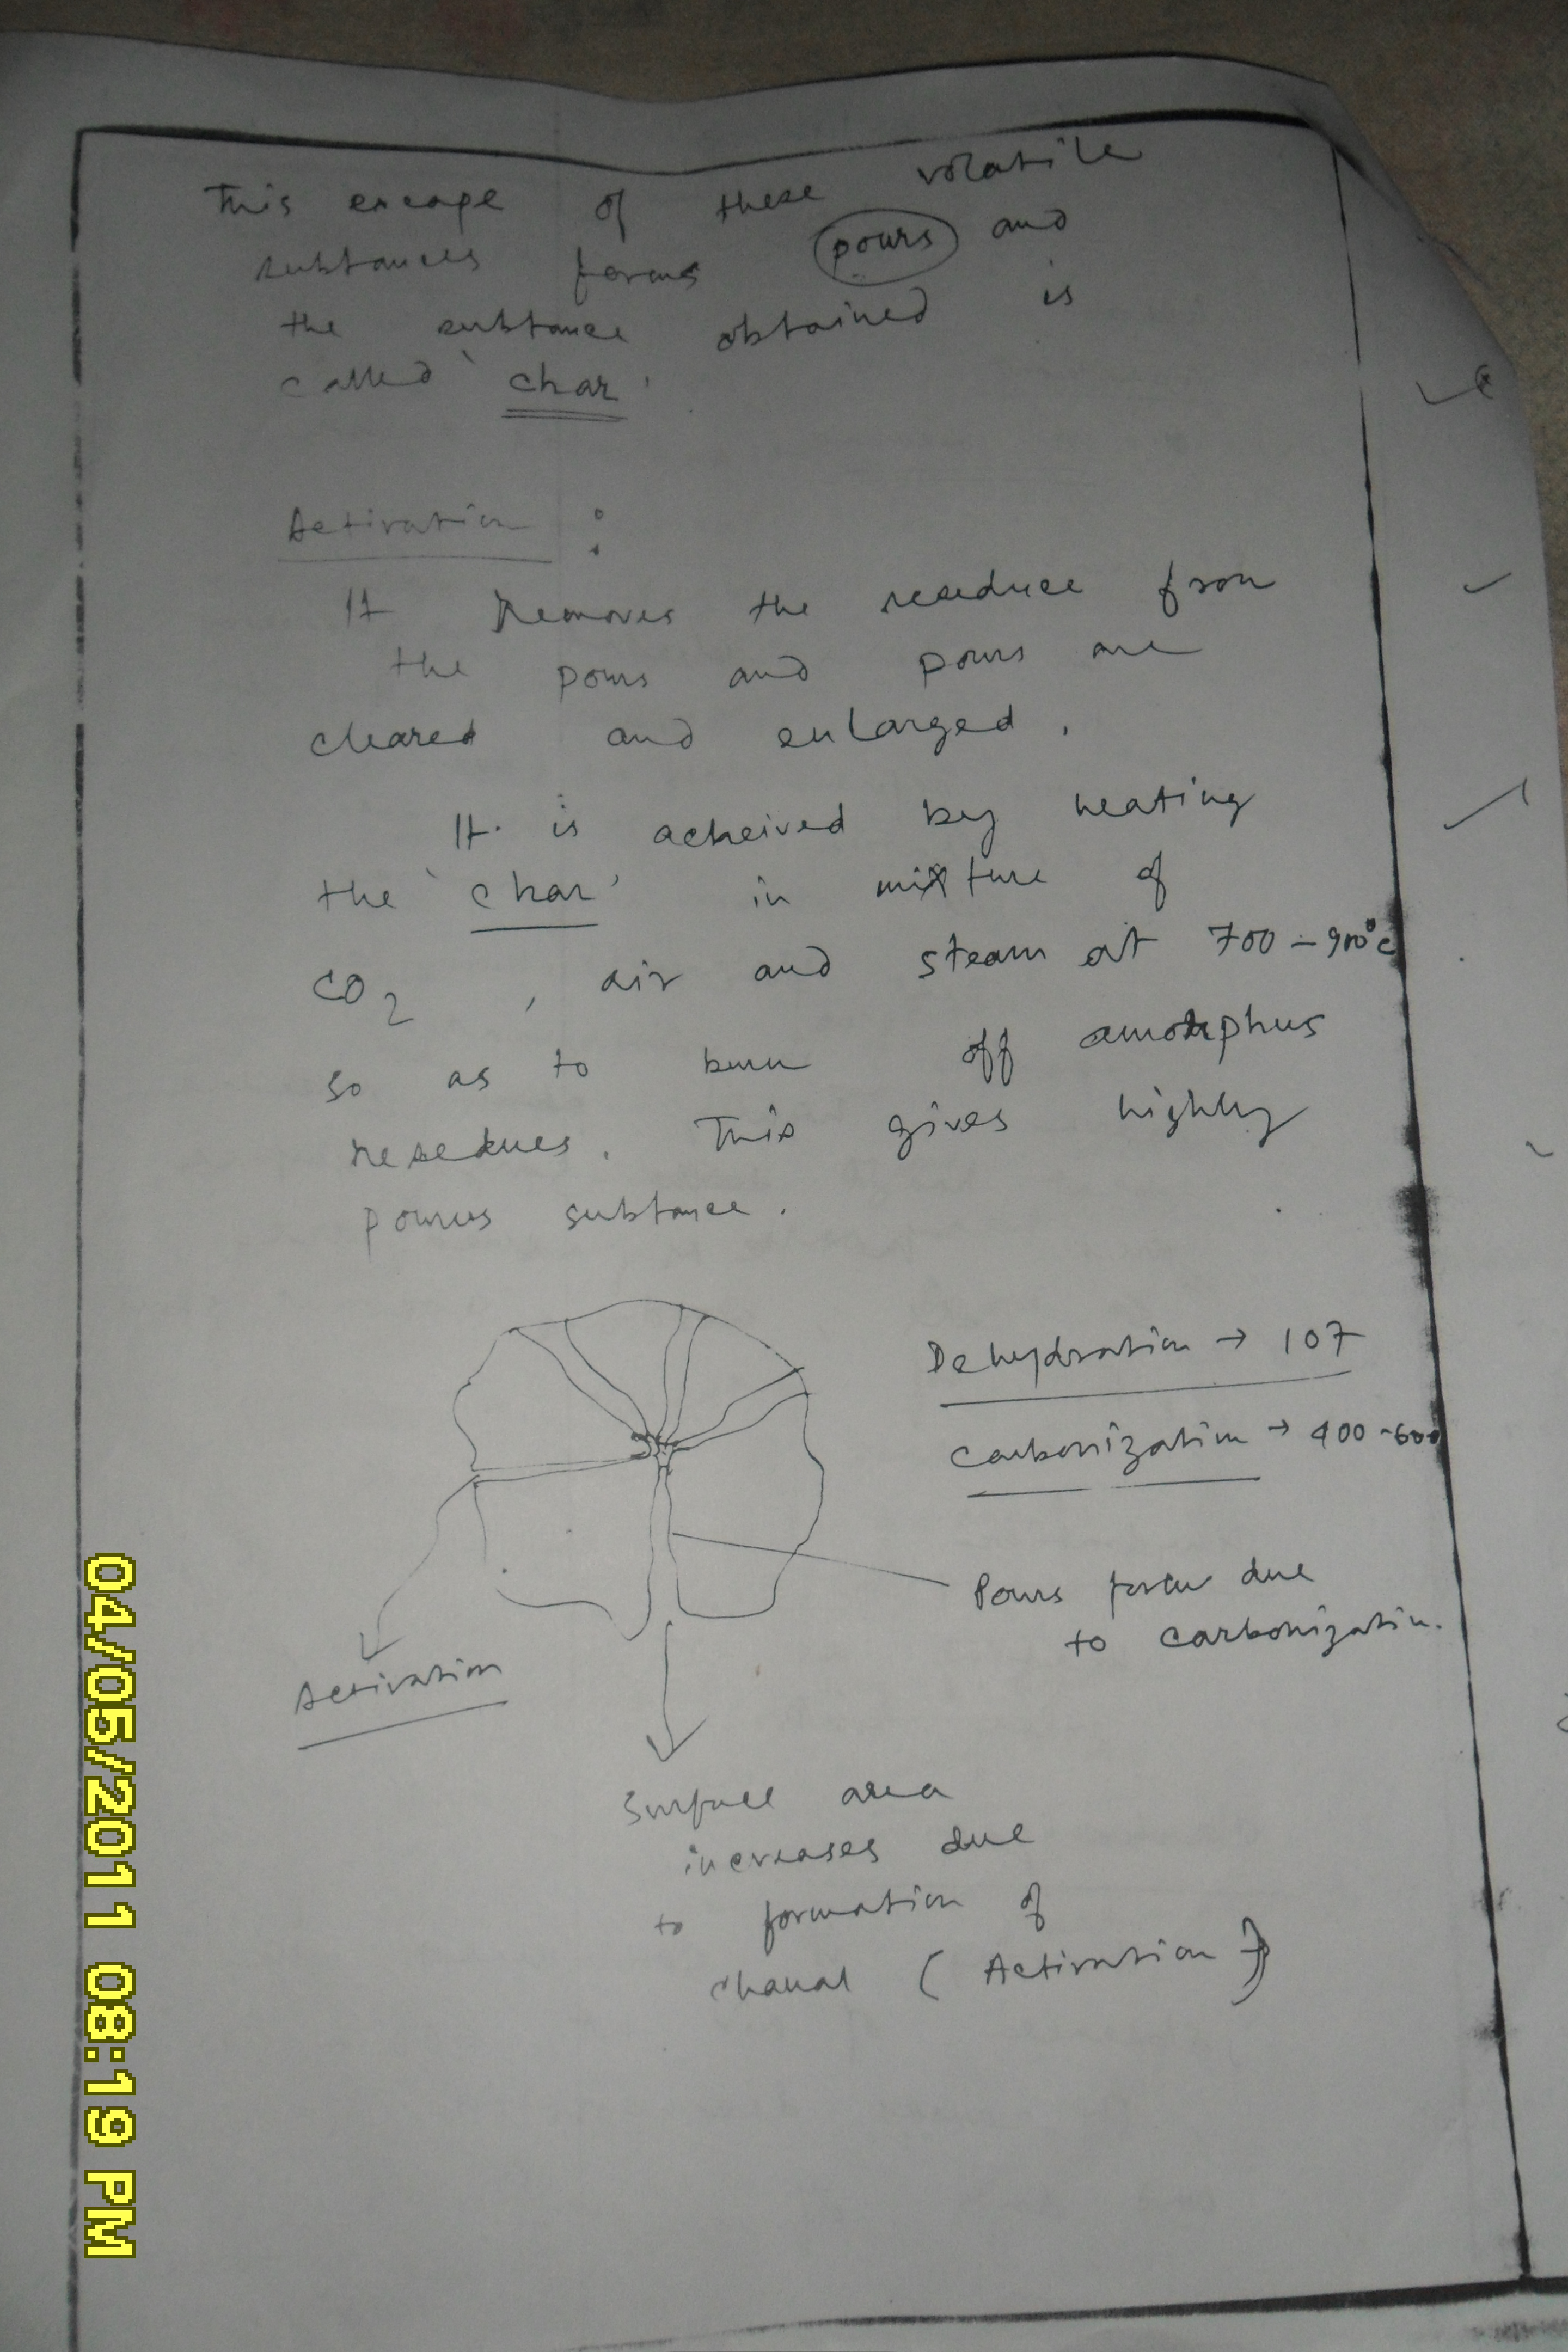 This escape of these volatile
substances forms pours and
the substance obtained is
called 'char'
Activation :
It Removes the reseduce from
the pours and pours are
cleared and enlarged.
It is acheived by heating
the 'char' in mixture of
CO2, air and steam at 700 - 900°c
so as to burn off amorphus
resedues. This gives highly
pourus substance.
Dehydration → 107
Carbonization → 400 - 600
Pours form due
to carbonization.
Activation
Surface area
increases due
to formation of
chanal (Activation)
04/05/2011 08:19 PM